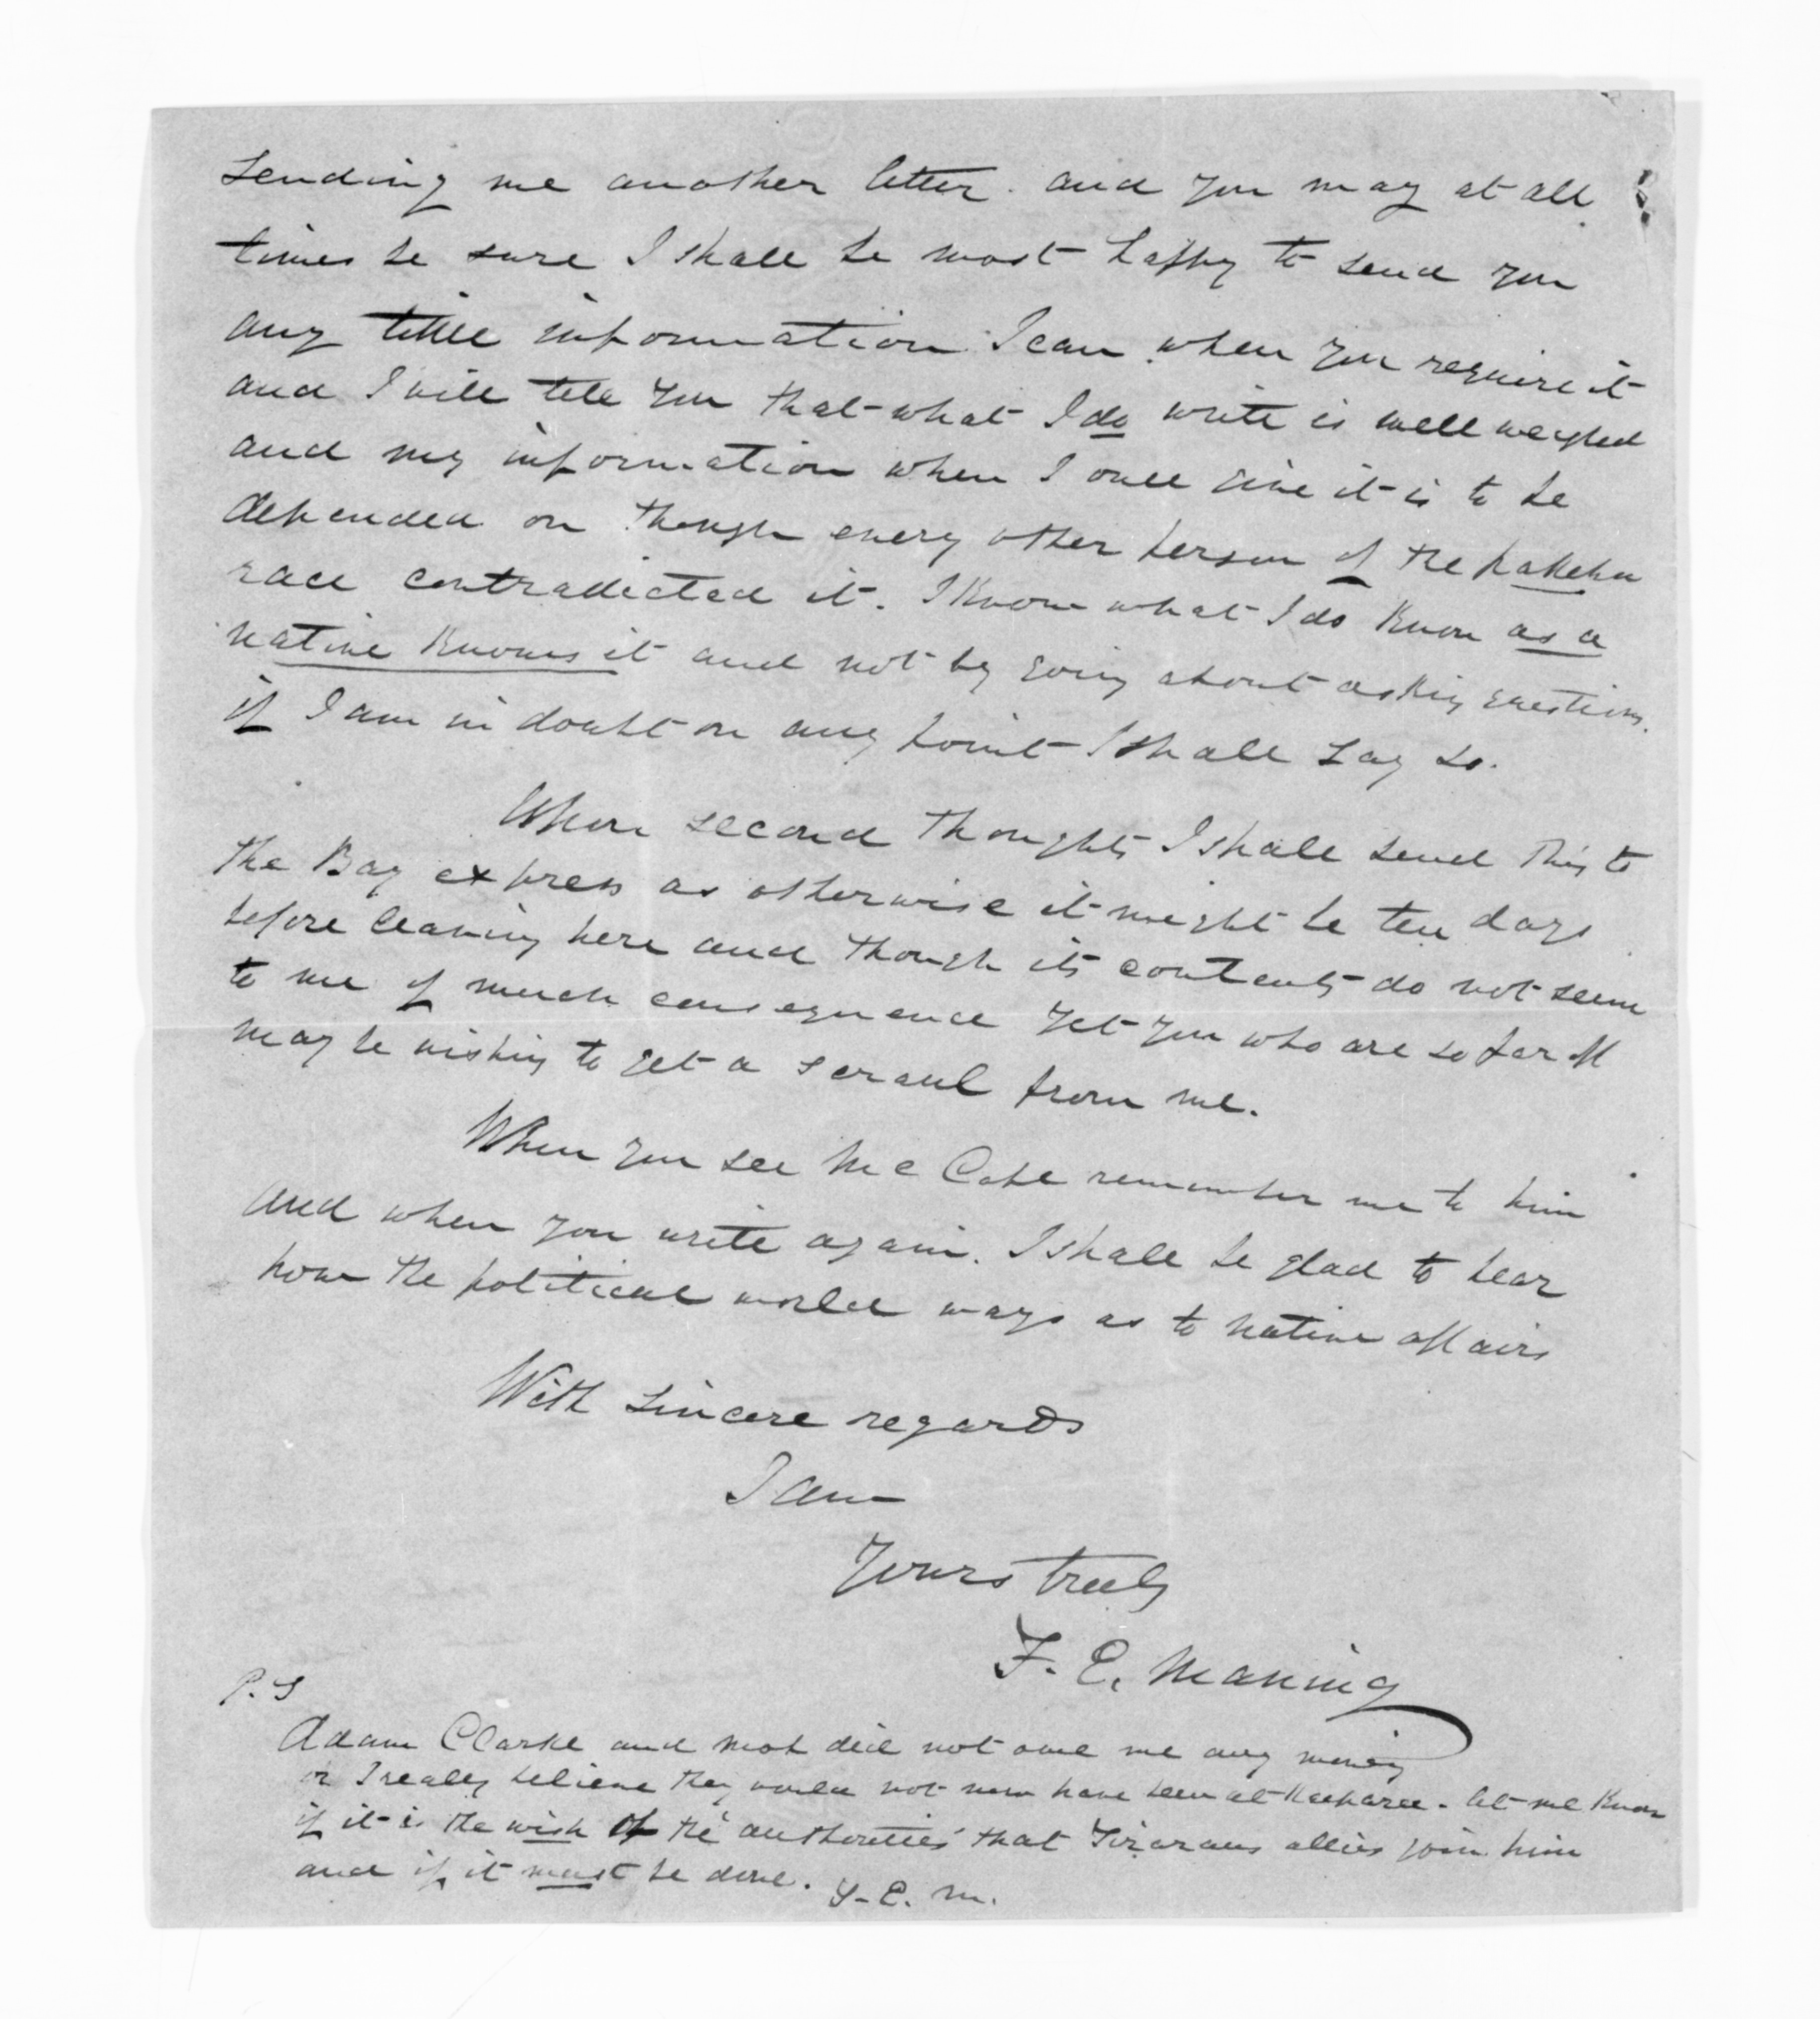 sending me another letter. and you may at all
times be sure I shall be most happy to send you
any little information I can when you require it
and I will tell you that what I do write is well weighed
and my information when I once give it is to be
depended on though every other person of the pakeha
race contradicted it. I know what I do know as a
native knows it and not by going about asking questions.
if I am in doubt on any point I shall say so.
When second thoughts I shall send this to
the Bay express as otherwise it might be ten days
before leaving here and though its contents do not seem
to me of much consequence yet you who are so far off
may be wishing to get a scrawl from me.
When you see Mc Cabe remember me to him
and when you write again. I shall be glad to hear
how the political world wags as to native affairs
With sincere regards
I am
Yours truly
F. E. Maning
P.S
Adam Clarke and did not owe me any money
or I really believe they would not now have been at let me know
if it is the wish of the authorities that allies join him
and if it must be done. F. E. M.